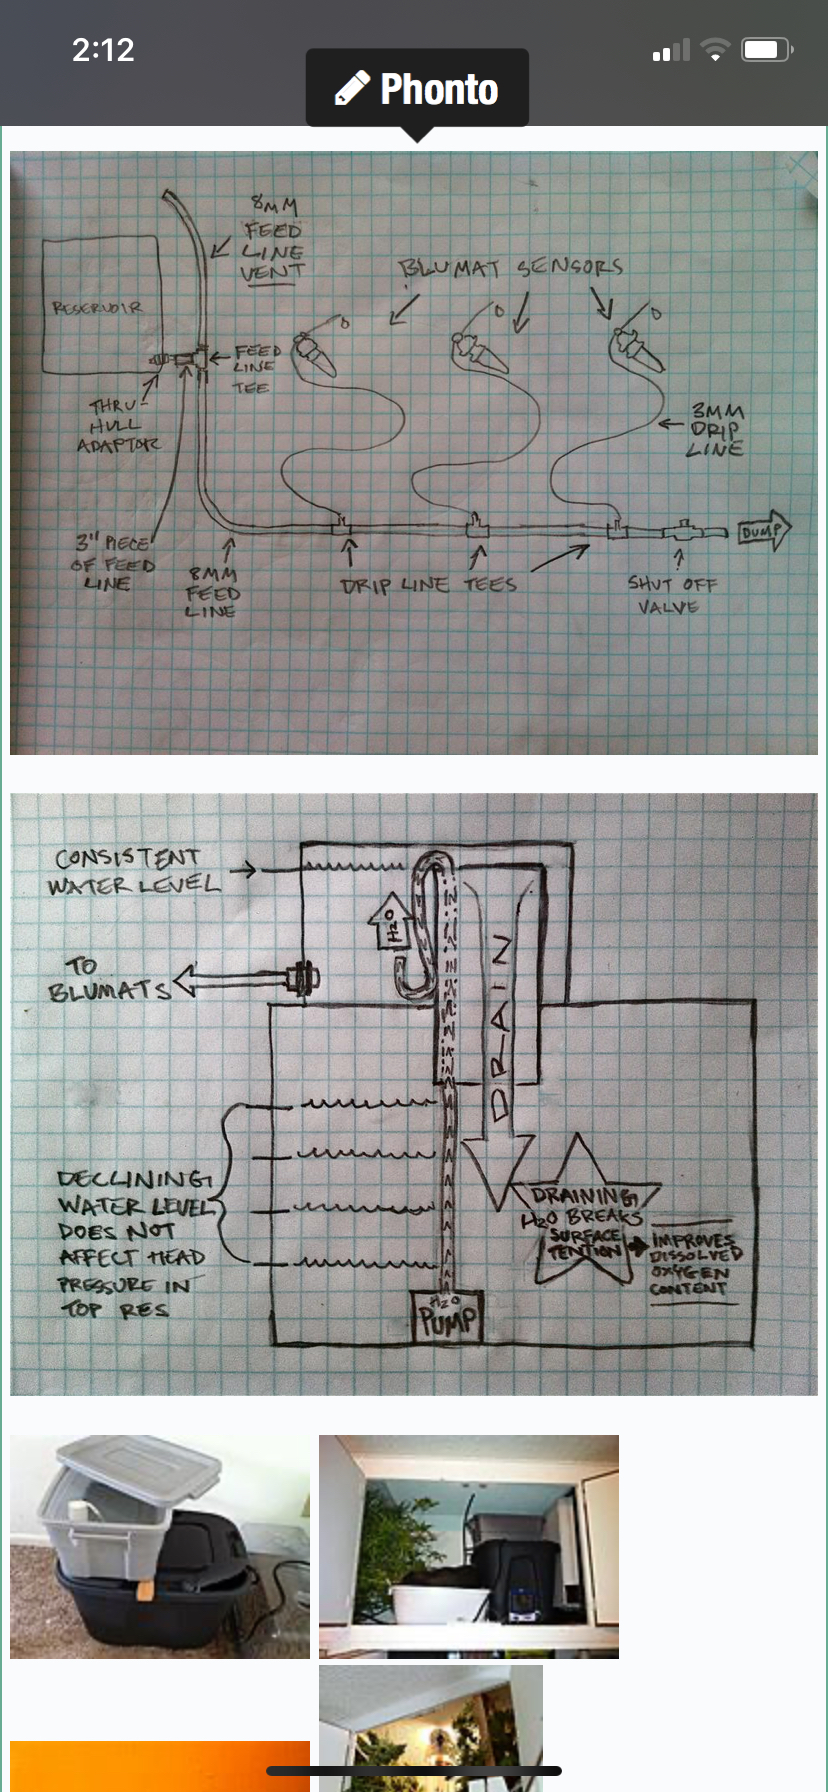 2:12
Phonto
8MM
FEED
LINE
VENT
BLUMAT SENSORS
RESERVOIR
FEED
LINE
TEE
THRU-
HULL
ADAPTOR
3MM
DRIP
LINE
3" PIECE
OF FEED
LINE
8MM
FEED
LINE
DRIP LINE TEES
SHUT OFF
VALVE
DUMP
CONSISTENT
WATER LEVEL
H2O
TO
BLUMATS
DRAIN
DECLINING
WATER LEVEL
DOES NOT
AFFECT HEAD
PRESSURE IN
TOP RES
DRAINING
H2O BREAKS
SURFACE
TENTION
IMPROVES
DISSOLVED
OXYGEN
CONTENT
H2O
PUMP